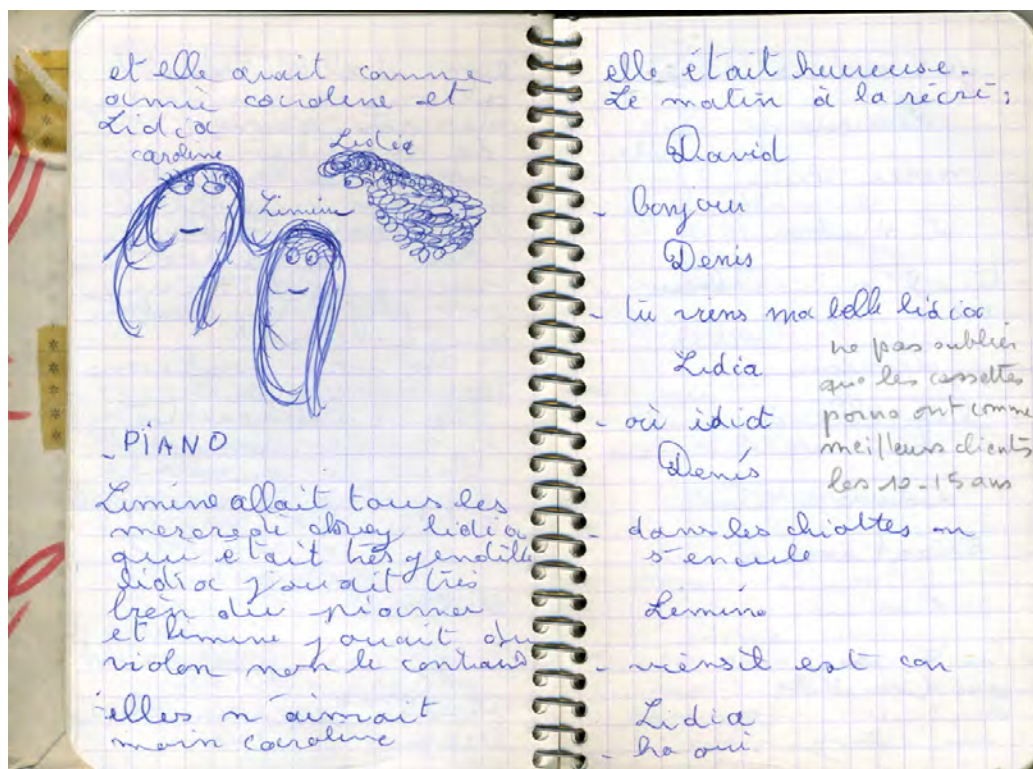 et elle avait comme
amie caroline et
Lidia
caroline
Lidia
Limine
_ PIANO
Limine allait tous les
mercredi chez lidia
qui était très gendille
lidia jouait très
bien du pianne
et limine jouait du
violon non le contraire
elles n'aimait
moin caroline
elle était hureuse.
Le matin à la récré :
David
- bonjour
Denis
- tu viens ma belle lidia
Lidia
- où idiot
Denis
- dans les chiottes on
s'encule
Limine
- viens il est con
Lidia
- ha oui
ne pas oublier
que les cassettes
porno ont comme
meilleurs clients
les 12-15 ans